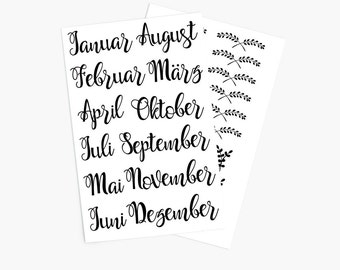 Januar August
Februar März
April Oktober
Juli September
Mai November
Juni Dezember